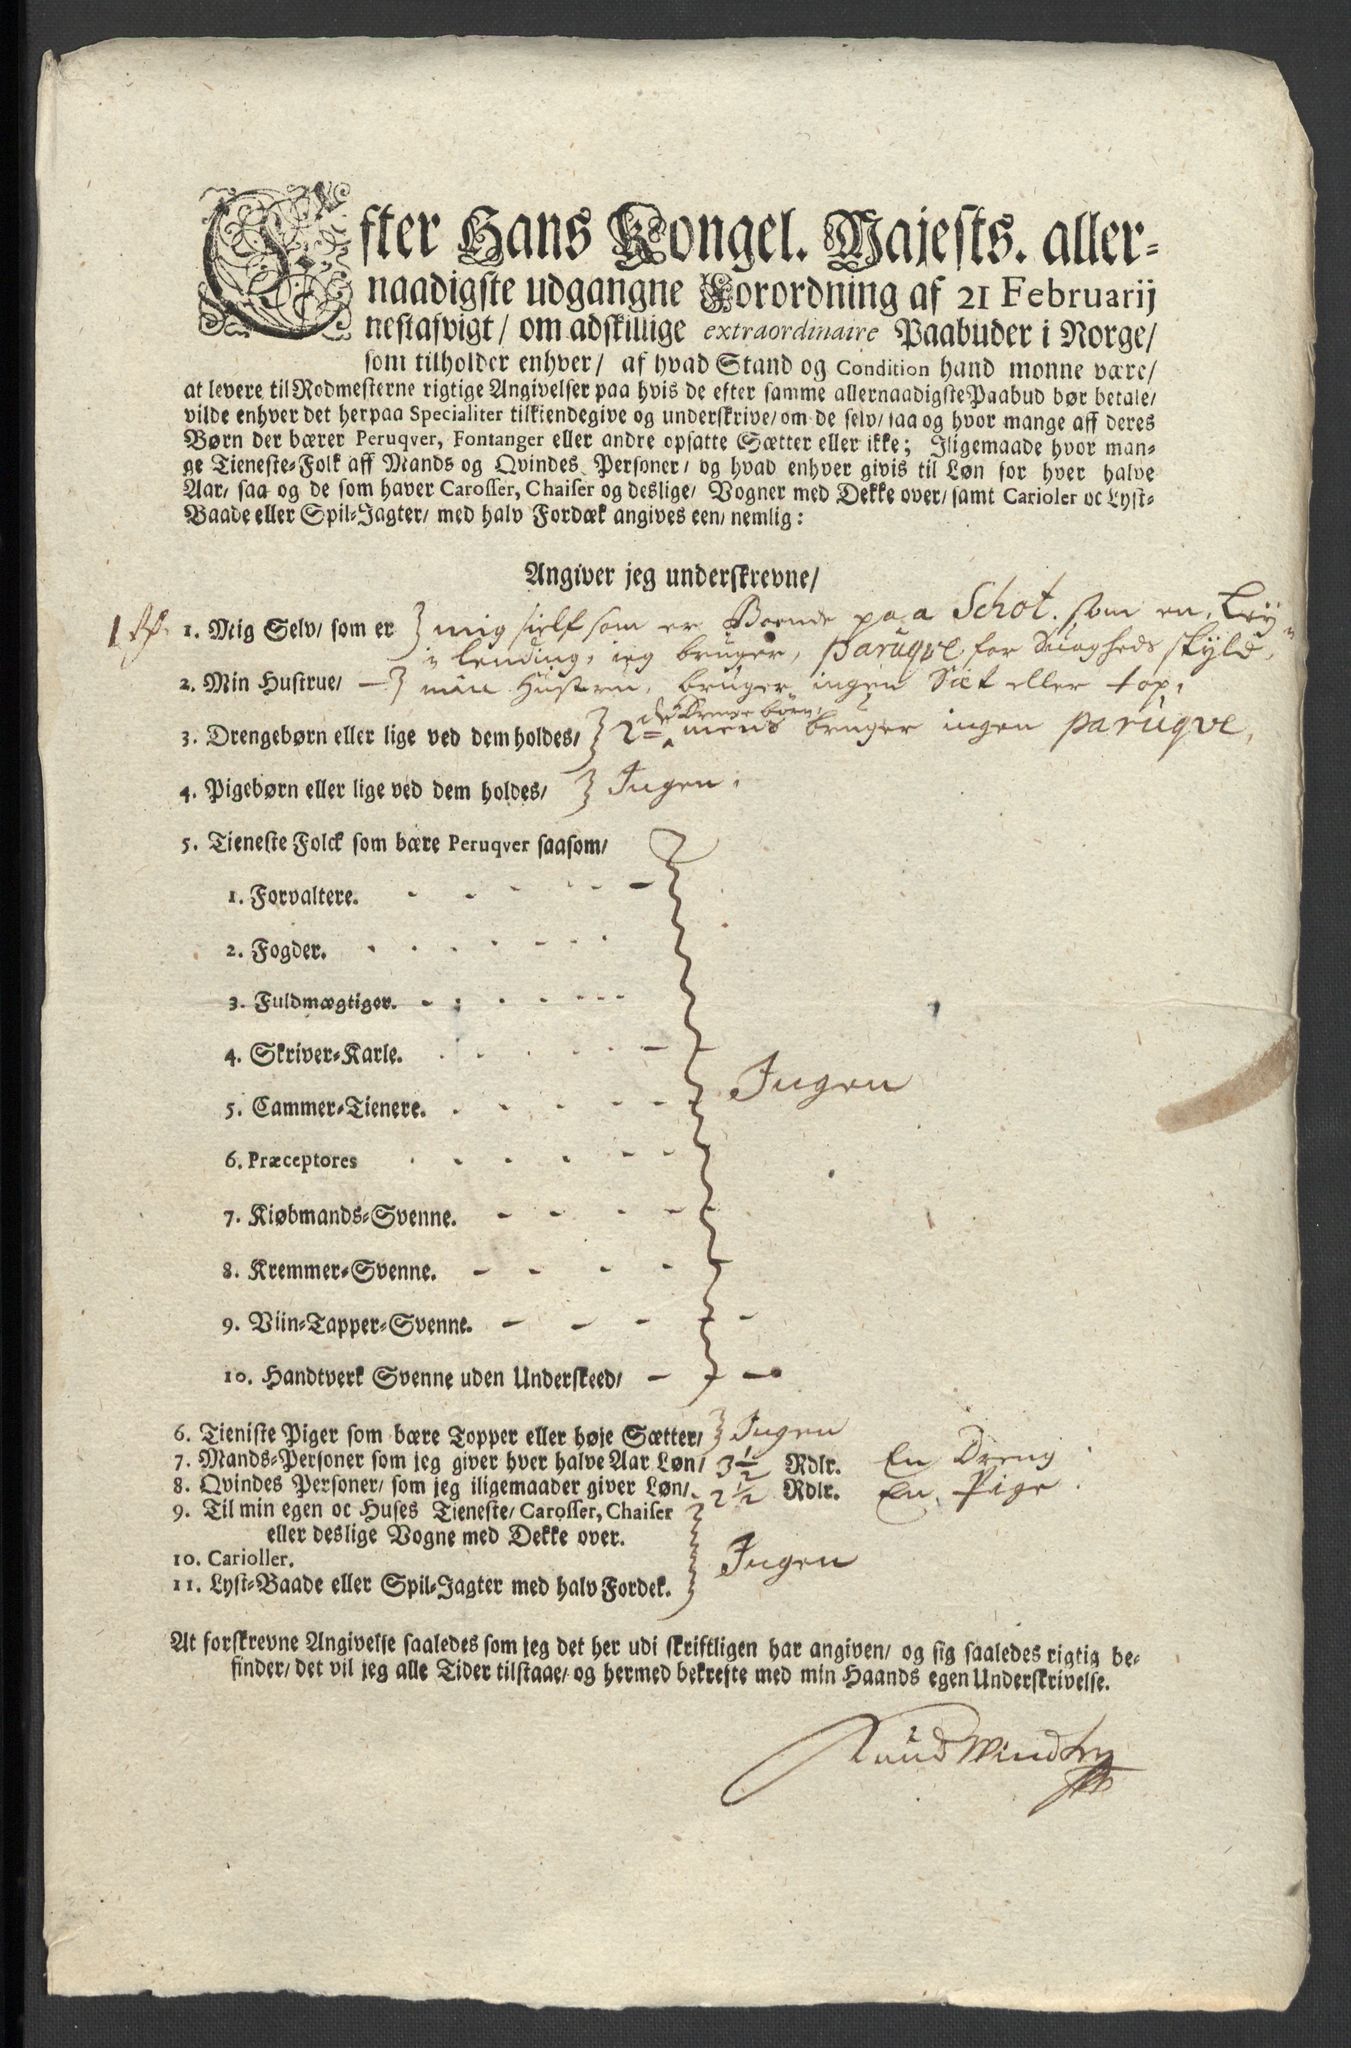 Efter Hans Kongel. Majests. aller-
naadigste udgangne Forordning af 21 Februarij
nestafvigt/ om adskillige extraordinaire Paabuder i Norge/
som tilholder enhver/ af hvad Stand og Condition hand monne være/
at levere til Rodmesterne rigtige Angivelser paa hvis de efter samme allernaadigste Paabud bør betale/
vilde enhver det herpaa Specialiter tilkiendegive og underskrive/ om de selv/ saa og hvor mange aff deres
Børn der bærer Peruqver, Fontanger eller andre opsatte Sætter eller ikke; Iligemaade hvor man-
ge Tieneste-Folk aff Mands og Qvindes Personer/ og hvad enhver givis til Løn for hver halve
Aar/ saa og de som haver Carosser, Chaiser og deslige/ Vogner med Dekke over/ samt Carioler oc Lyst-
Baade eller Spil-Jagter/ med halv Fordæk angives een/ nemlig:
Angiver jeg underskrevne/
1. Mig Selv/ som er mig sielf som er Boende paa Schot. som en Ley
lending, ieg bruger, paruqve for Suagheds skyld,
2. Min Hustrue/ min Hustru, bruger ingen Sæt eller top,
3. Drengebørn eller lige ved dem holdes/ 2de Drenge børn, mens bruger ingen paruqve,
4. Pigebørn eller lige ved dem holdes/ Ingen.
5. Tieneste Folck som bære Peruqver saasom/
1. Forvaltere.
2. Fogder.
3. Fuldmægtiger.
4. Skriver-Karle.
5. Cammer-Tienere. Ingen
6. Præceptores
7. Kiøbmands-Svenne.
8. Kremmer-Svenne.
9. Viin-Tapper-Svenne.
10. Handtverk Svenne uden Underskeed/
6. Tieniste Piger som bære Topper eller høje Sætter/ Ingen
7. Mands-Personer som jeg giver hver halve Aar Løn/ 3 1/2 Rdlr. En Dreng
8. Qvindes Personer/ som jeg iligemaader giver Løn/ 2 1/2 Rdlr. En Pige
9. Til min egen oc Huses Tieneste/ Carosser, Chaiser
eller deslige Vogne med Dekke over.
10. Carioller. Ingen
11. Lyst-Baade eller Spil-Jagter med halv Fordek.
At forskrevne Angivelse saaledes som jeg det her udi skriftligen har angiven/ og sig saaledes rigtig be-
finder/ det vil jeg alle Tider tilstaae/ og hermed bekrefte med min Haands egen Underskrivelse.
Knud Windhy